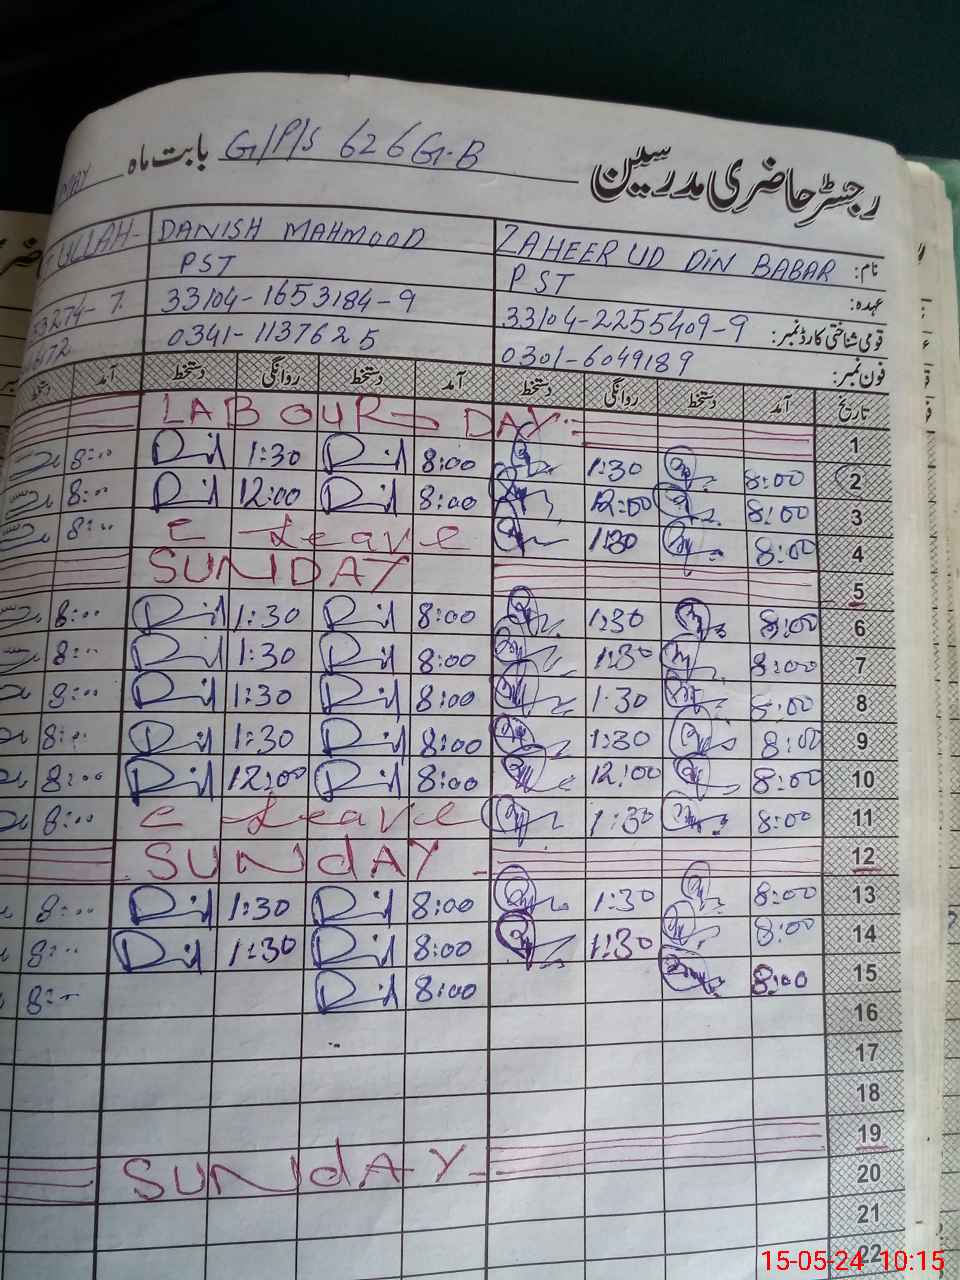 رجسٹر حاضری مدرسین بابت ماہ G/P/S 626 G-B
نام: ZAHEER UD DIN BABAR DANISH MAHMOOD ULLAH-
عہدہ: PST PST
قومی شناختی کارڈ نمبر: 33104-2255409-9 33104-1653184-9
فون نمبر: 0301-6049189 0341-1137625
تاریخ آمد دستخط روانگی دستخط آمد دستخط روانگی دستخط آمد دستخط
1 LABOUR DAY
2 8:00 1:30 8:00 1:30 8:00
3 8:00 12:00 8:00 12:00 8:00
4 8:00 1:30 c Leave 8:00
5 SUNDAY
6 8:00 1:30 8:00 1:30 8:00
7 8:00 1:30 8:00 1:30 8:00
8 8:00 1:30 8:00 1:30 8:00
9 8:00 1:30 8:00 1:30 8:00
10 8:00 12:00 8:00 12:00 8:00
11 8:00 1:30 c Leave 8:00
12 SUNdAY
13 8:00 1:30 8:00 1:30 8:00
14 8:00 1:30 8:00 1:30 8:00
15 8:00 8:00 8:00
16
17
18
19 SUNdAY
20
21
22
15-05-24 10:15